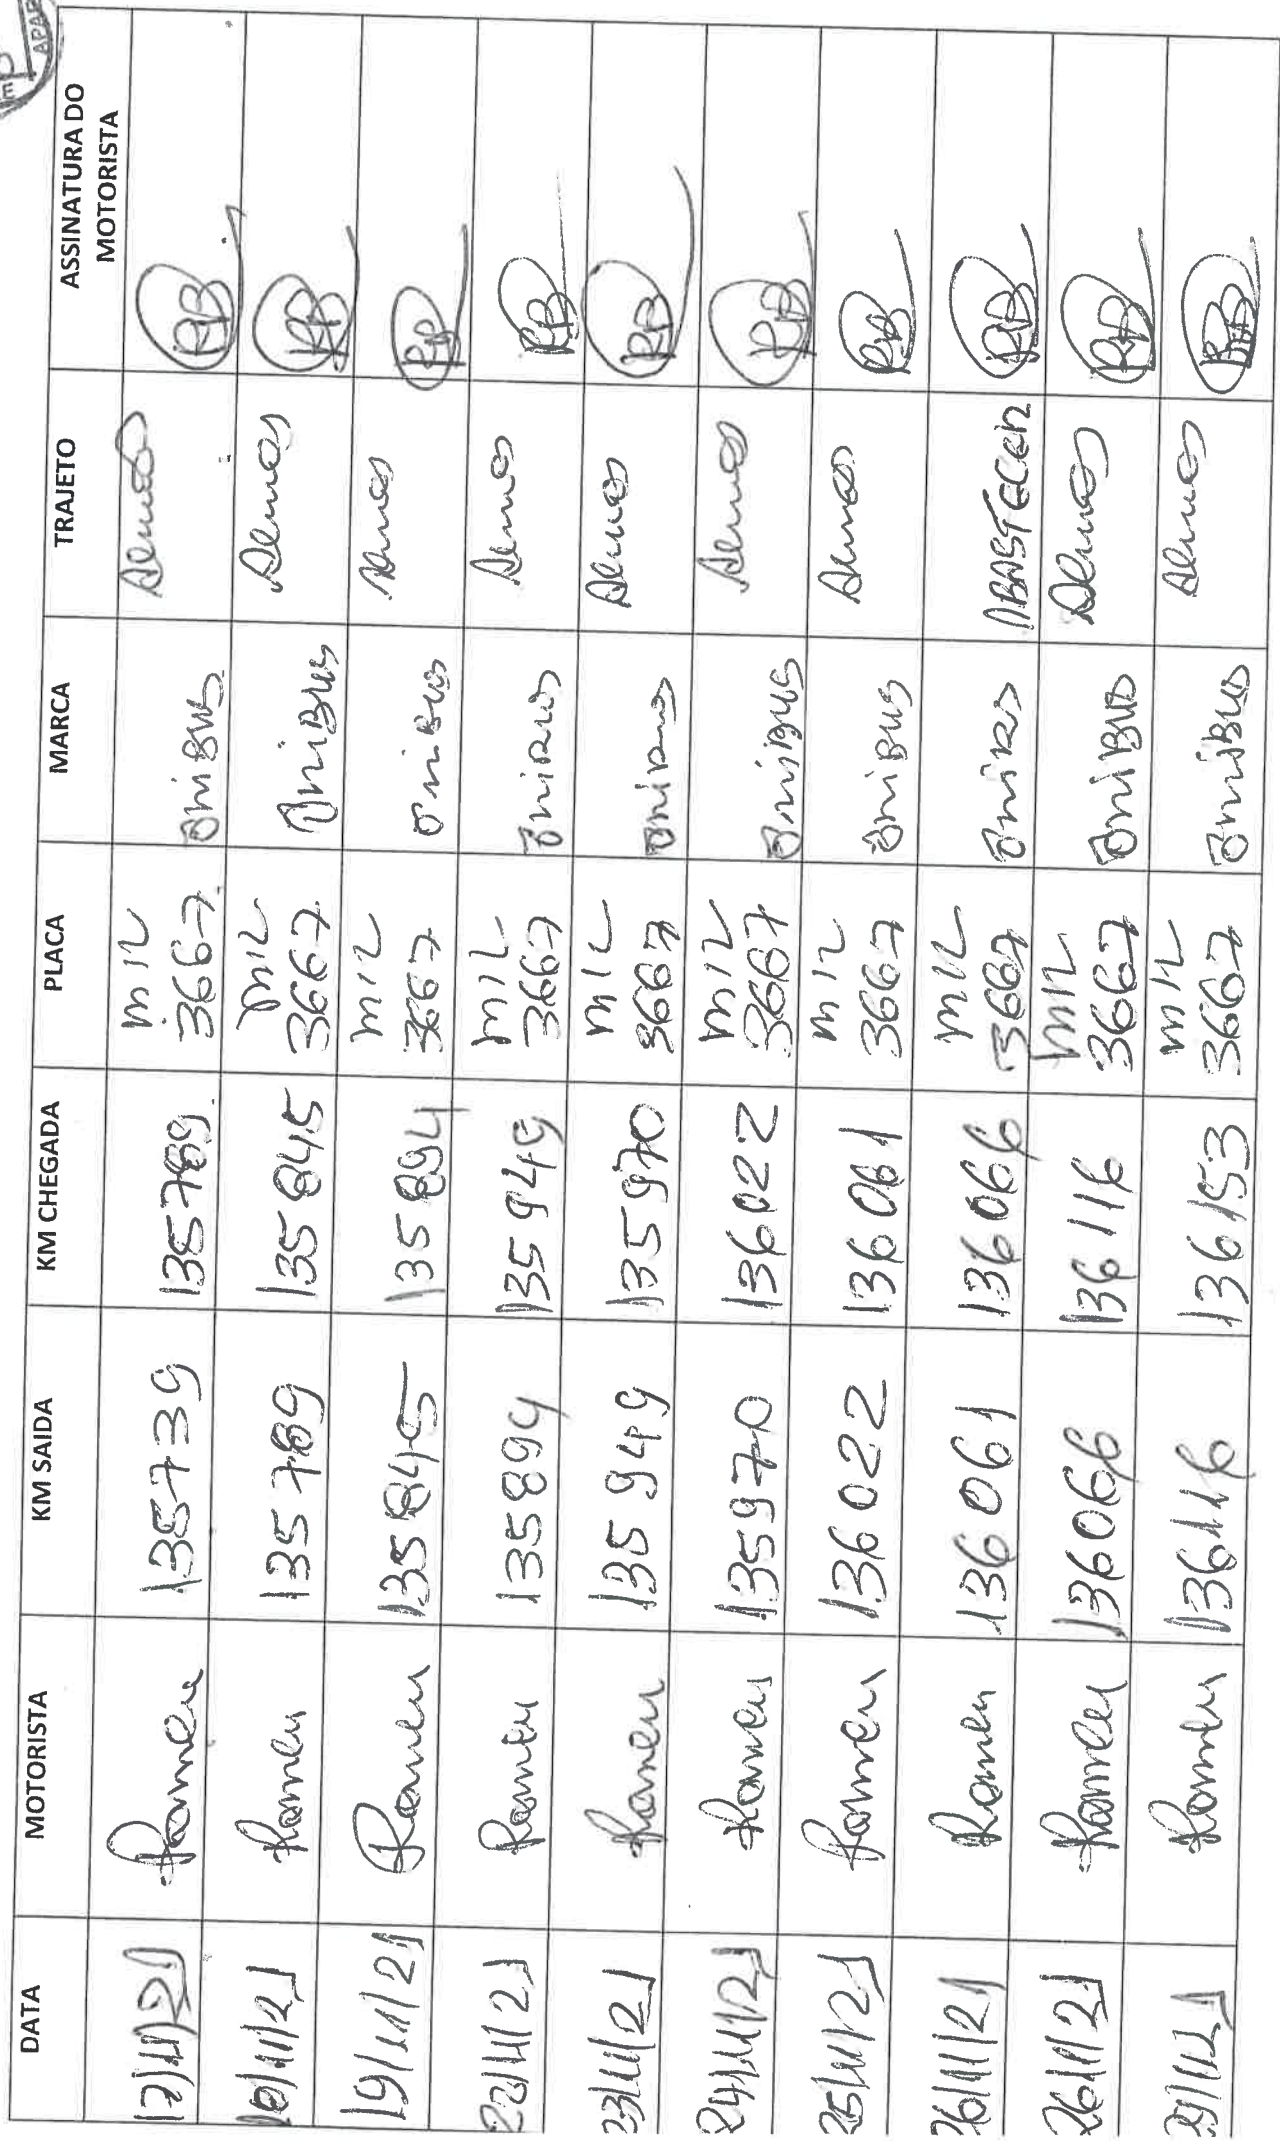 DATA MOTORISTA KM SAIDA KM CHEGADA PLACA MARCA TRAJETO ASSINATURA DO MOTORISTA
17/11/21 Romeu 135739 135789 MIL 3667 ÔniBus Alunos RB
18/11/21 Romeu 135789 135845 MIL 3667 ÔniBus Alunos RB
19/11/21 Romeu 135845 135894 MIL 3667 ÔniBus Alunos RB
22/11/21 Romeu 135894 135949 MIL 3667 Ônibus Alunos RB
23/11/21 Romeu 135949 135970 MIL 3667 Ônibus Alunos RB
24/11/21 Romeu 135970 136022 MIL 3667 ÔniBus Alunos RB
25/11/21 Romeu 136022 136061 MIL 3667 ÔniBus Alunos RB
26/11/21 Romeu 136061 136066 MIL 3667 Ônibus ABASTECER RB
26/11/21 Romeu 136066 136116 MIL 3667 ÔniBus Alunos RB
29/11/21 Romeu 136116 136153 MIL 3667 ÔniBus Alunos RB